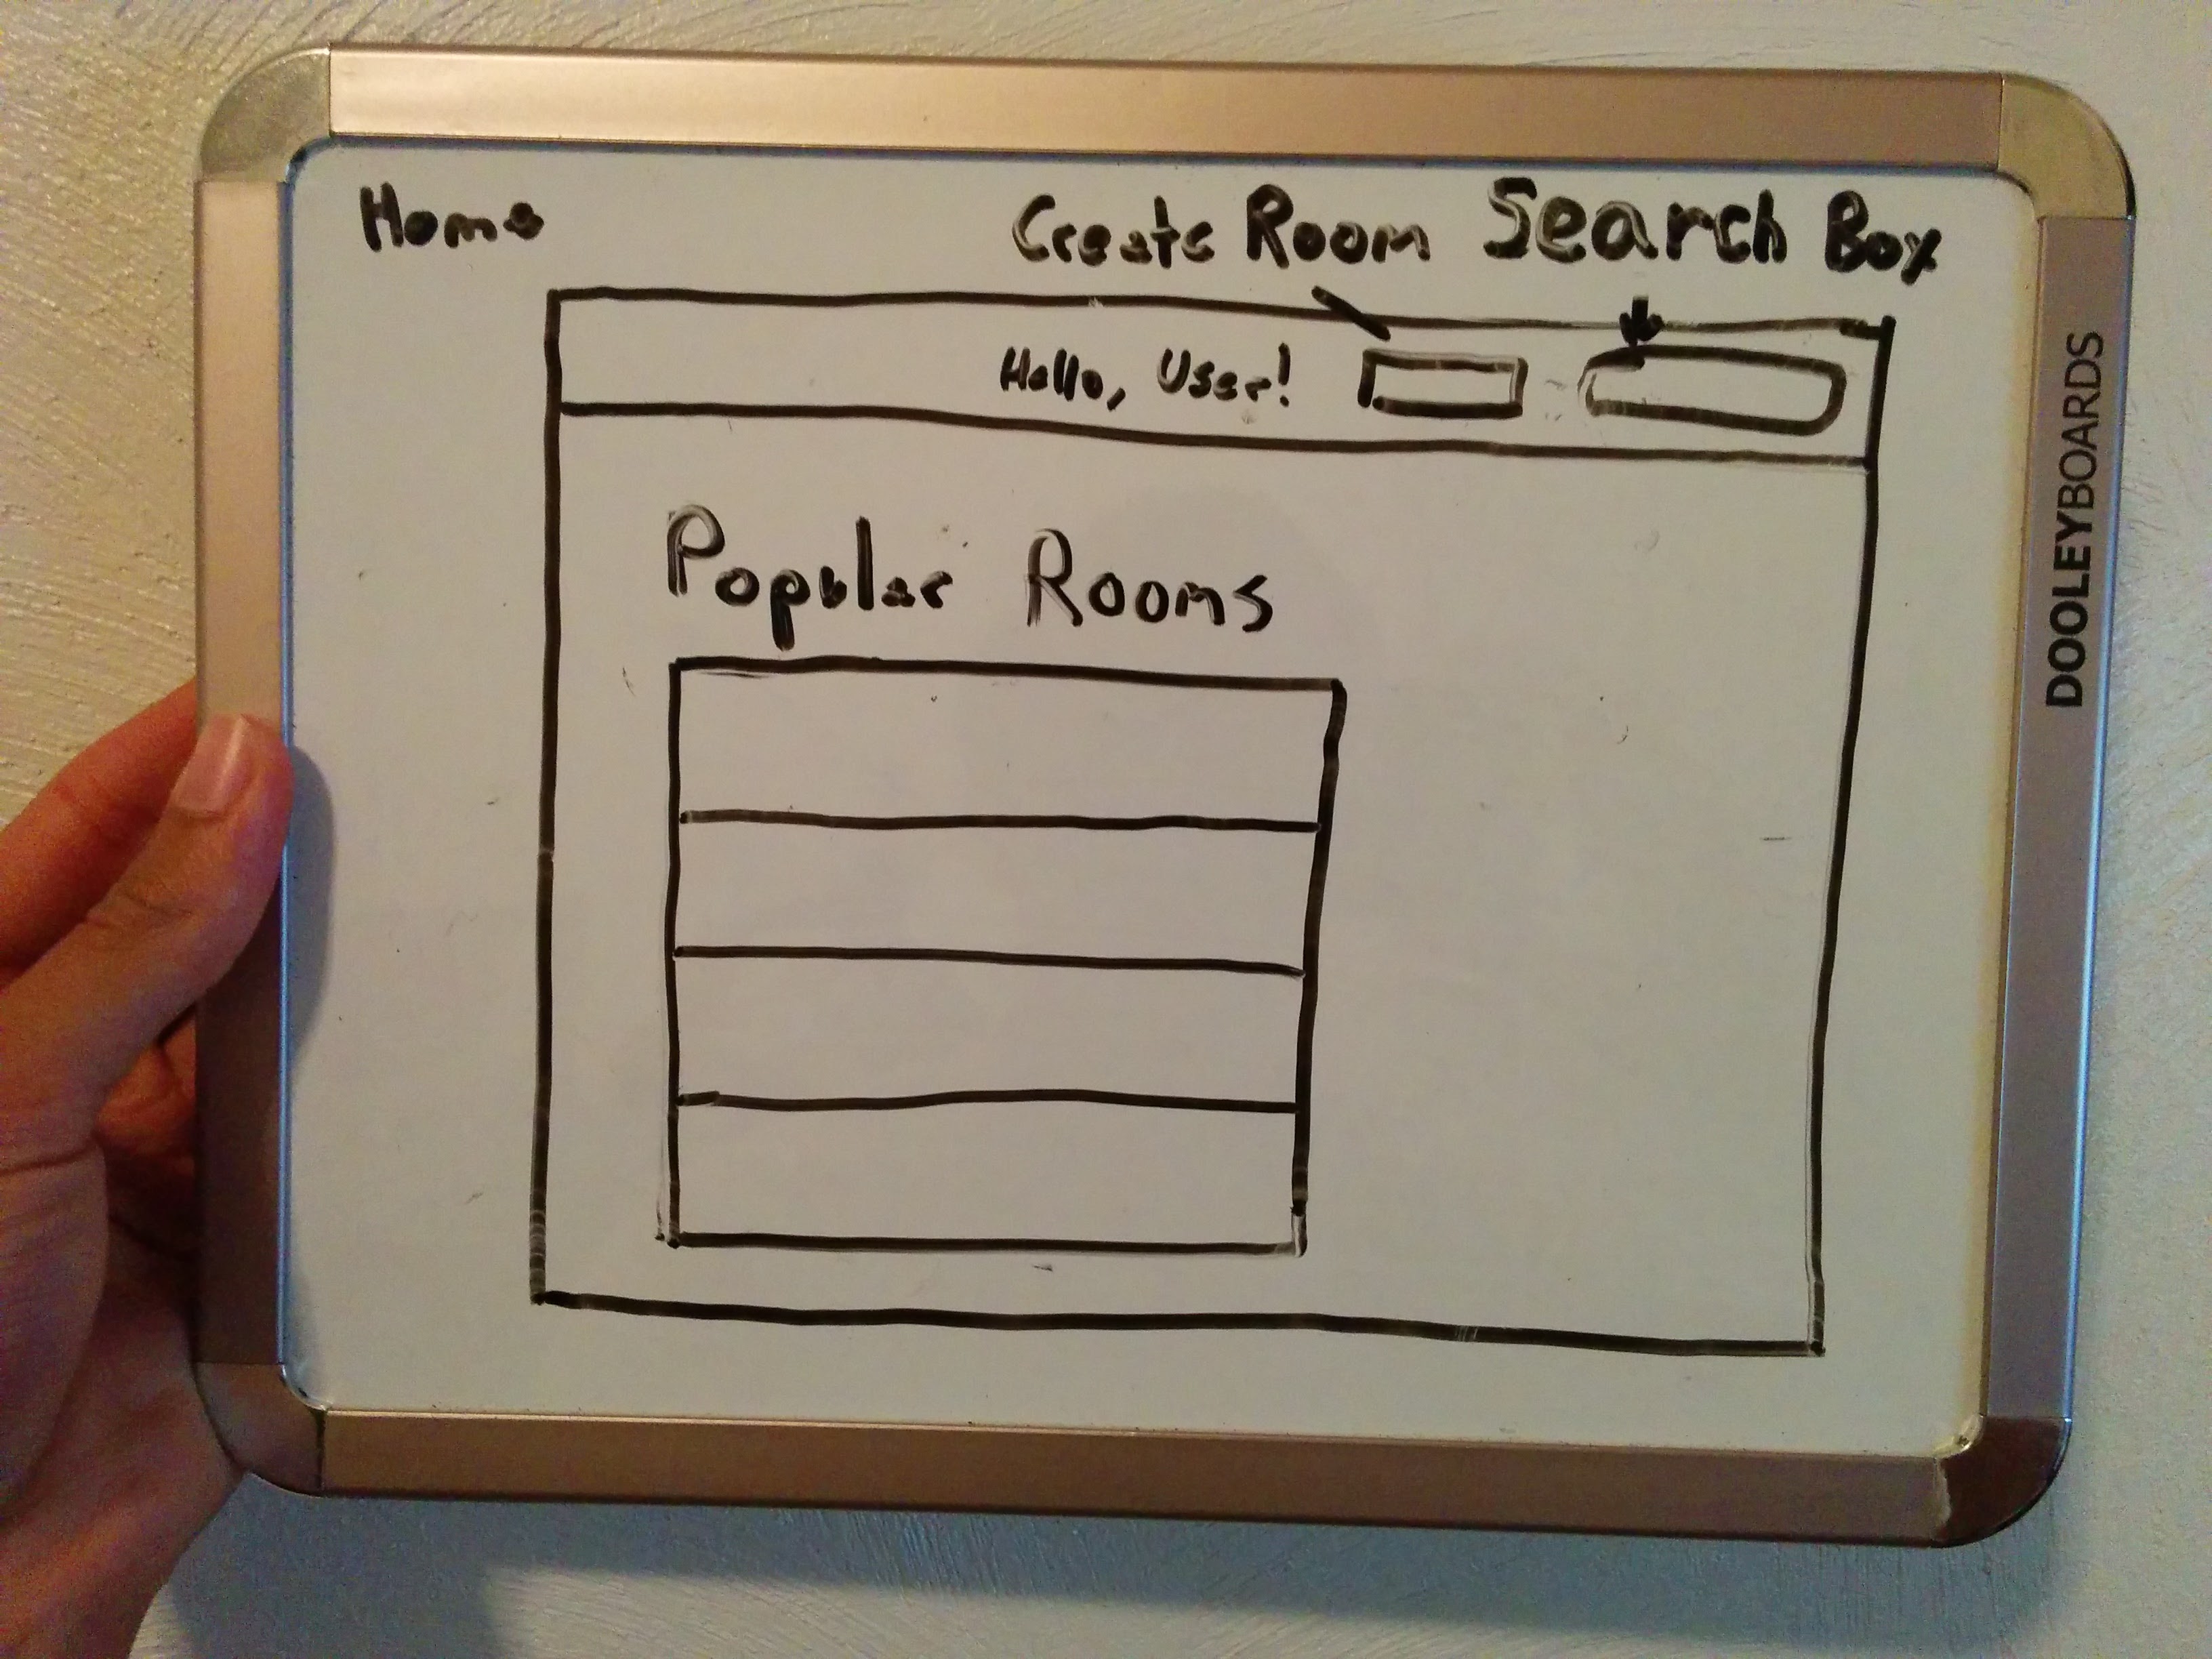 Home
Create Room Search Box
Hello, User!
Popular Rooms
DOOLEYBOARDS